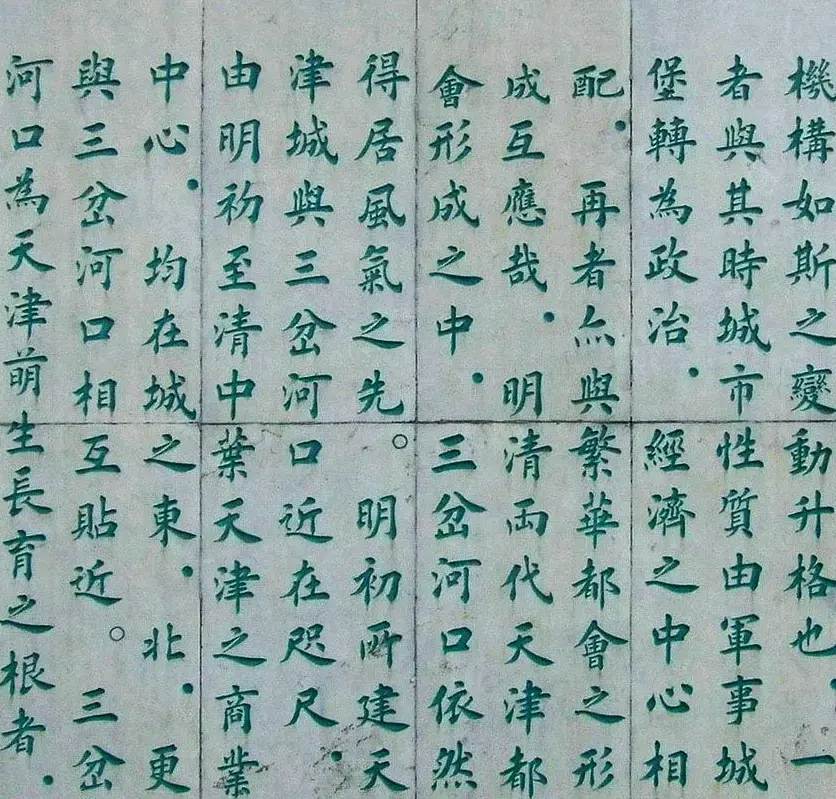 機構如斯之變動升格也．一
者與其時城市性質由軍事城
堡轉為政治．經濟之中心相
配．再者亦與繁華都會之形
成互應哉．明清兩代天津都
會形成之中．三岔河口依然
得居風氣之先。明初所建天
津城與三岔河口近在咫尺．
由明初至清中葉天津之商業
中心．均在城之東．北．更
與三岔河口相互貼近。三岔
河口為天津萌生長育之根者．